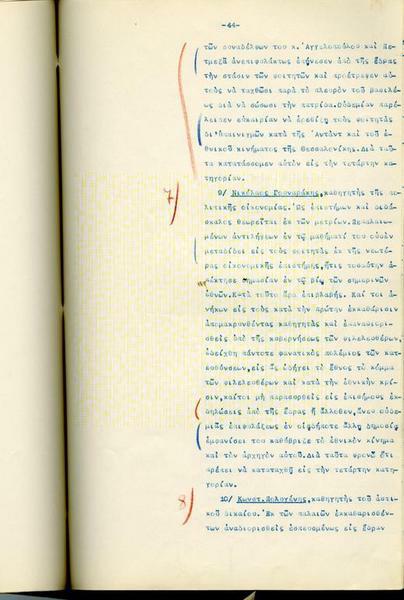 -44-
τῶν συναδέλφων του κ. Ἀγγελοπούλου καὶ Πε-
τμεζᾶ ἀνεπιφυλάκτως ἐπῄνεσεν ἀπὸ τῆς ἕδρας
τὴν στάσιν τῶν φοιτητῶν καὶ προέτρεψεν αὐ-
τοὺς νὰ ταχθῶσι παρὰ τὸ πλευρὸν τοῦ βασιλέ-
ως διὰ νὰ σώσωσι τὴν πατρίδα. Οὐδεμίαν παρέ-
λειπεν εὐκαιρίαν νὰ ἐρεθίζῃ τοὺς φοιτητὰς
δι' ὑπαινιγμῶν κατὰ τῆς Ἀντὰντ καὶ τοῦ ἐ-
θνικοῦ κινήματος τῆς Θεσσαλονίκης. Διὰ ταῦ-
τα κατατάσσομεν αὐτὸν εἰς τὴν τετάρτην κα-
τηγορίαν.
7)
9/ Νικόλαος Γουναράκης, καθηγητὴς τῆς πο-
λιτικῆς οἰκονομίας. Ὡς ἐπιστήμων καὶ διδά-
σκαλος θεωρεῖται ἐκ τῶν μετρίων. Πεπαλαιω-
μένων ἀντιλήψεων ἐν τῷ μαθήματί του οὐδὲν
μεταδίδει εἰς τοὺς φοιτητὰς ἐκ τῆς νεωτέ-
ρας οἰκονομικῆς ἐπιστήμης, ἥτις τοσαύτην ἀ-
πέκτησε σημασίαν ἐν τῷ βίῳ τῶν σημερινῶν
ἐθνῶν. Κατὰ τοῦτο ἄρα ἐπιβλαβής. Καί τοι ἀ-
νήκων εἰς τοὺς κατὰ τὴν πρώτην ἐκκαθάρισιν
ἀπομακρυνθέντας καθηγητὰς καὶ ἐπαναδιορι-
σθεὶς ὑπὸ τῆς κυβερνήσεως τῶν φιλελευθέρων,
ἐδείχθη πάντοτε φανατικὸς πολέμιος τῶν κατ-
ευθύνσεων, εἰς ἃς ὡδήγει τὸ ἔθνος τὸ κόμμα
τῶν φιλελευθέρων καὶ κατὰ τὴν ἐθνικὴν κρί-
σιν, καίτοι μὴ παρασυρθεὶς εἰς ἐπισήμους ἐκ-
δηλώσεις ἀπὸ τῆς ἕδρας ἢ ἄλλοθεν, ἄνευ οὐδε-
μιᾶς ἐπιφυλάξεως ἐν οἱᾳδήποτε ἄλλῃ δημοσίᾳ
ἐμφανίσει του καθύβριζε τὸ ἐθνικὸν κίνημα
καὶ τὸν ἀρχηγὸν αὐτοῦ. Διὰ ταῦτα φρονῶ ὅτι
πρέπει νὰ καταταχθῇ εἰς τὴν τετάρτην κατη-
γορίαν.
8)
10/ Κωνστ. Πολυγένης, καθηγητὴς τοῦ ἀστι-
κοῦ δικαίου. Ἐκ τῶν παλαιῶν ἐκκαθαρισθέν-
των ἀναδιορισθεὶς ἐσπευσμένως εἰς ἕδραν